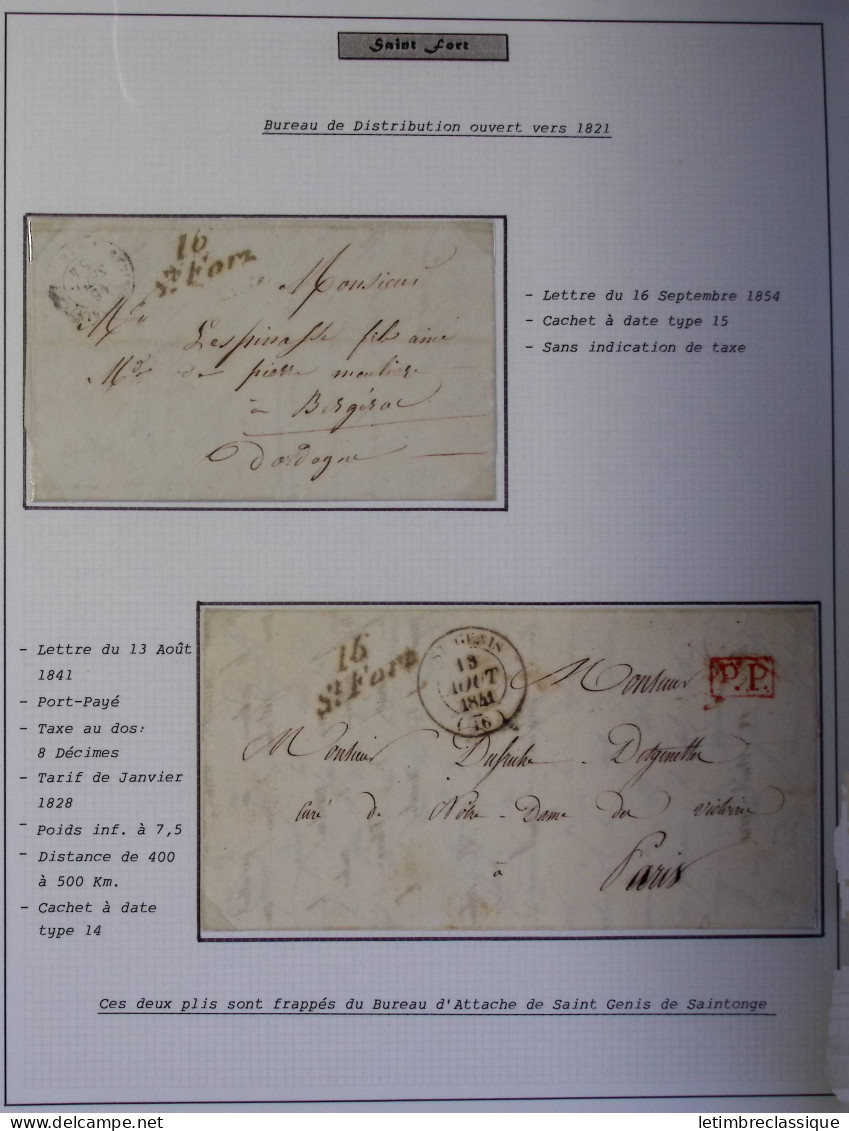 Saint Fort
Bureau de Distribution ouvert vers 1821
16
St. Fort
Monsieur
Mr
Lespinasse fils ainé
Md de pierre moulière
à Bergerac
Dordogne
- Lettre du 16 Septembre 1854
- Cachet à date type 15
- Sans indication de taxe
- Lettre du 13 Août
1841
- Port-Payé
- Taxe au dos:
8 Décimes
- Tarif de Janvier
1828
- Poids inf. à 7,5
- Distance de 400
à 500 Km.
- Cachet à date
type 14
16
St. Fort
ST GENIS
13
AOUT
1841
(16)
P.P.
Monsieur
Monsieur
curé de Notre-Dame des victoires
à
Paris
Ces deux plis sont frappés du Bureau d'Attache de Saint Genis de Saintonge
letimbreclassique